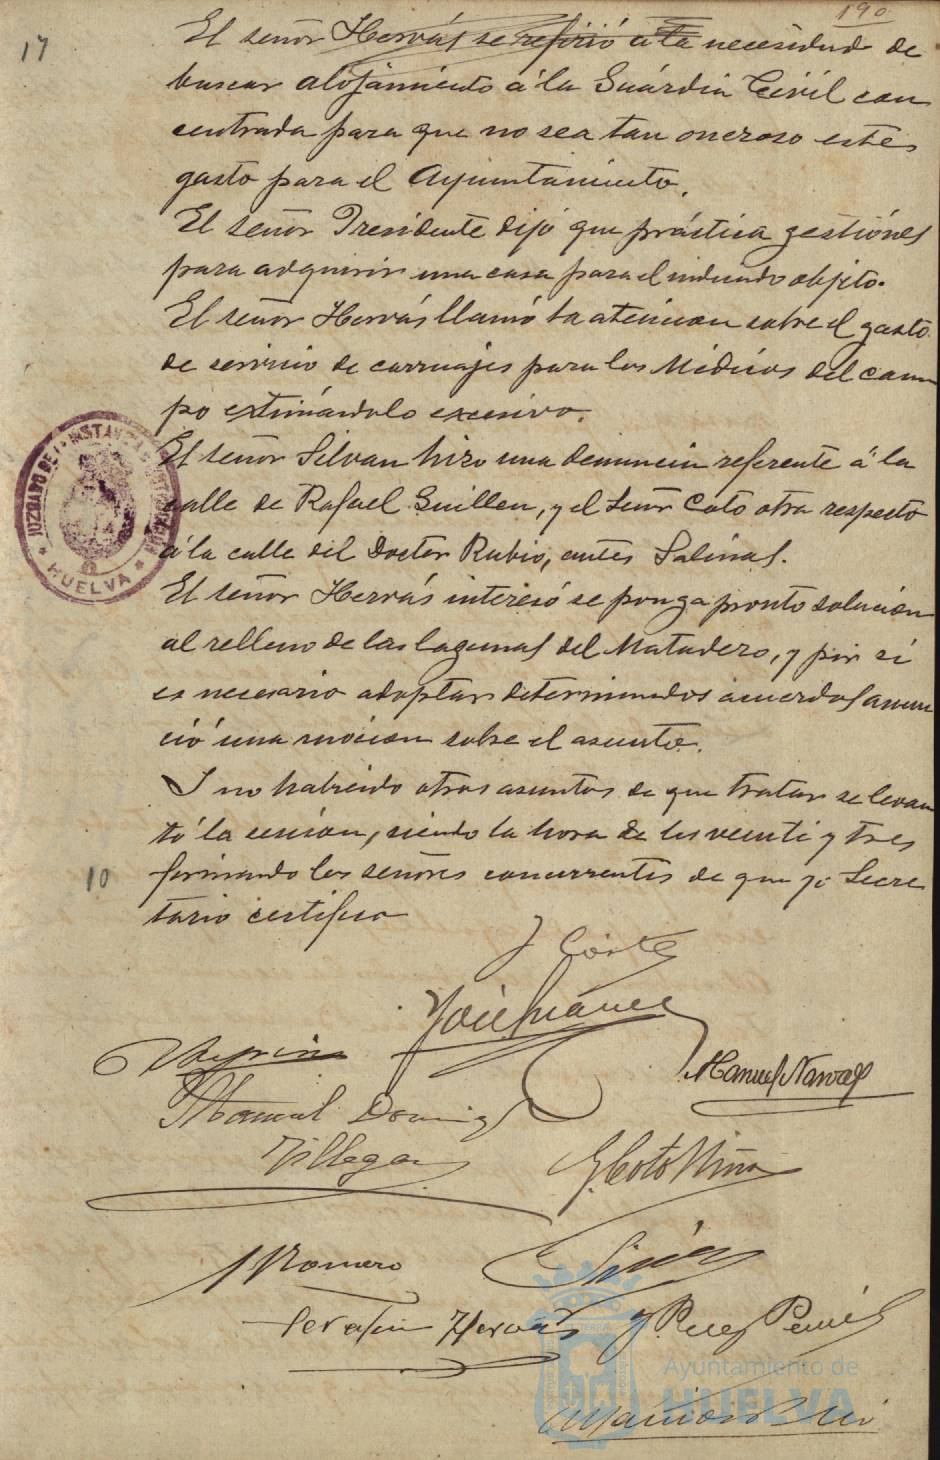 190
17
El señor Hervás se refirió á la necesidad de
buscar alojamiento á la Guardia Civil con
centrada para que no sea tan oneroso este
gasto para el Ayuntamiento.
El señor Presidente dijo que práctica gestiónes
para adquirir una casa para el indicado objeto.
El señor Hervás llamó la atención sobre el gasto
de servicio de carruajes para los Médicos del cam
po estimándolo excesivo.
El señor Silvan hizo una denuncia referente á la
calle de Rafael Guillen, y el señor Coto otra respecto
á la calle del Doctor Rubio, antes Salinas.
El señor Hervás interesó se ponga pronto solución
al relleno de las lagunas del Matadero, y por si
es necesario adoptar determinados acuerdos anun
ció una moción sobre el asunto.
Y no habiendo otros asuntos de que tratar se levan
tó la sesión, siendo la hora de las veinti y tres
firmando los señores concurrentes de que yo Secre
tario certifico
10
JUZGADO DE INSTANCIA
HUELVA
J Cortes
José Suárez
Manuel Narvaez
Manuel Doming
Villegas
G. Coto Niño
Romero
Serafin Hervás
J. Perez
Ayuntamiento de
HUELVA